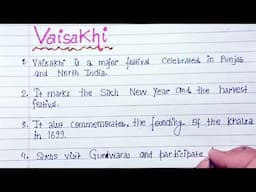 Vaisakhi
1. Vaisakhi is a major festival celebrated in Punjab
and North India.
2. It marks the Sikh New Year and the harvest
festival.
3. It also commemorates, the founding of the Khalsa
in 1699.
4. Sikhs visit Gurdwaras and participate